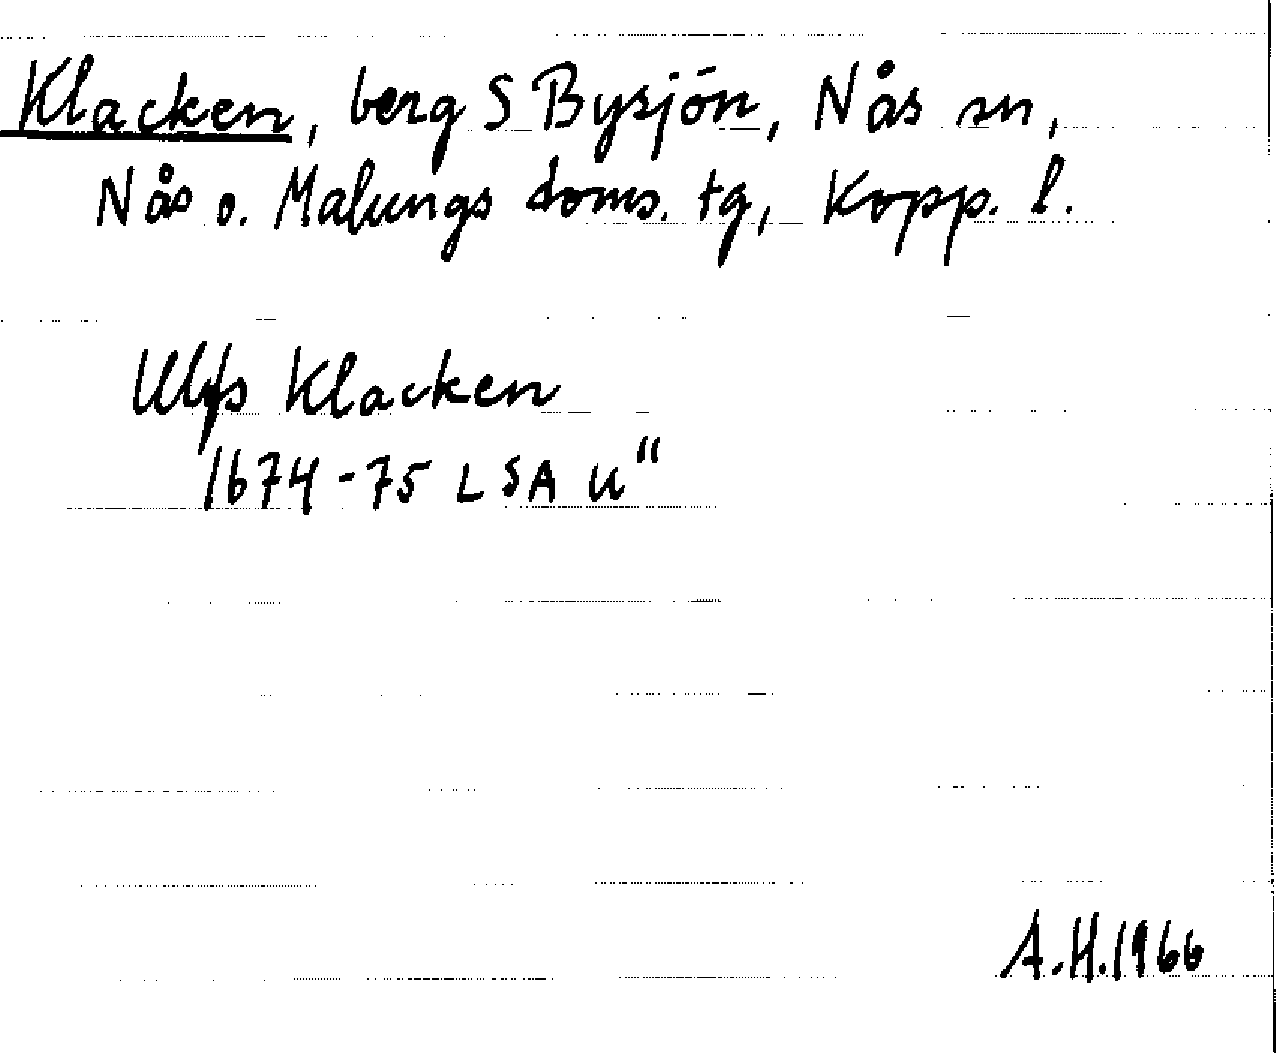 Klacken, berg S Bysjön, Nås sn,
Nås o. Malungs doms. tg, Kopp. l.
Ulfs Klacken
1674-75 LSA U"
A.H.1966